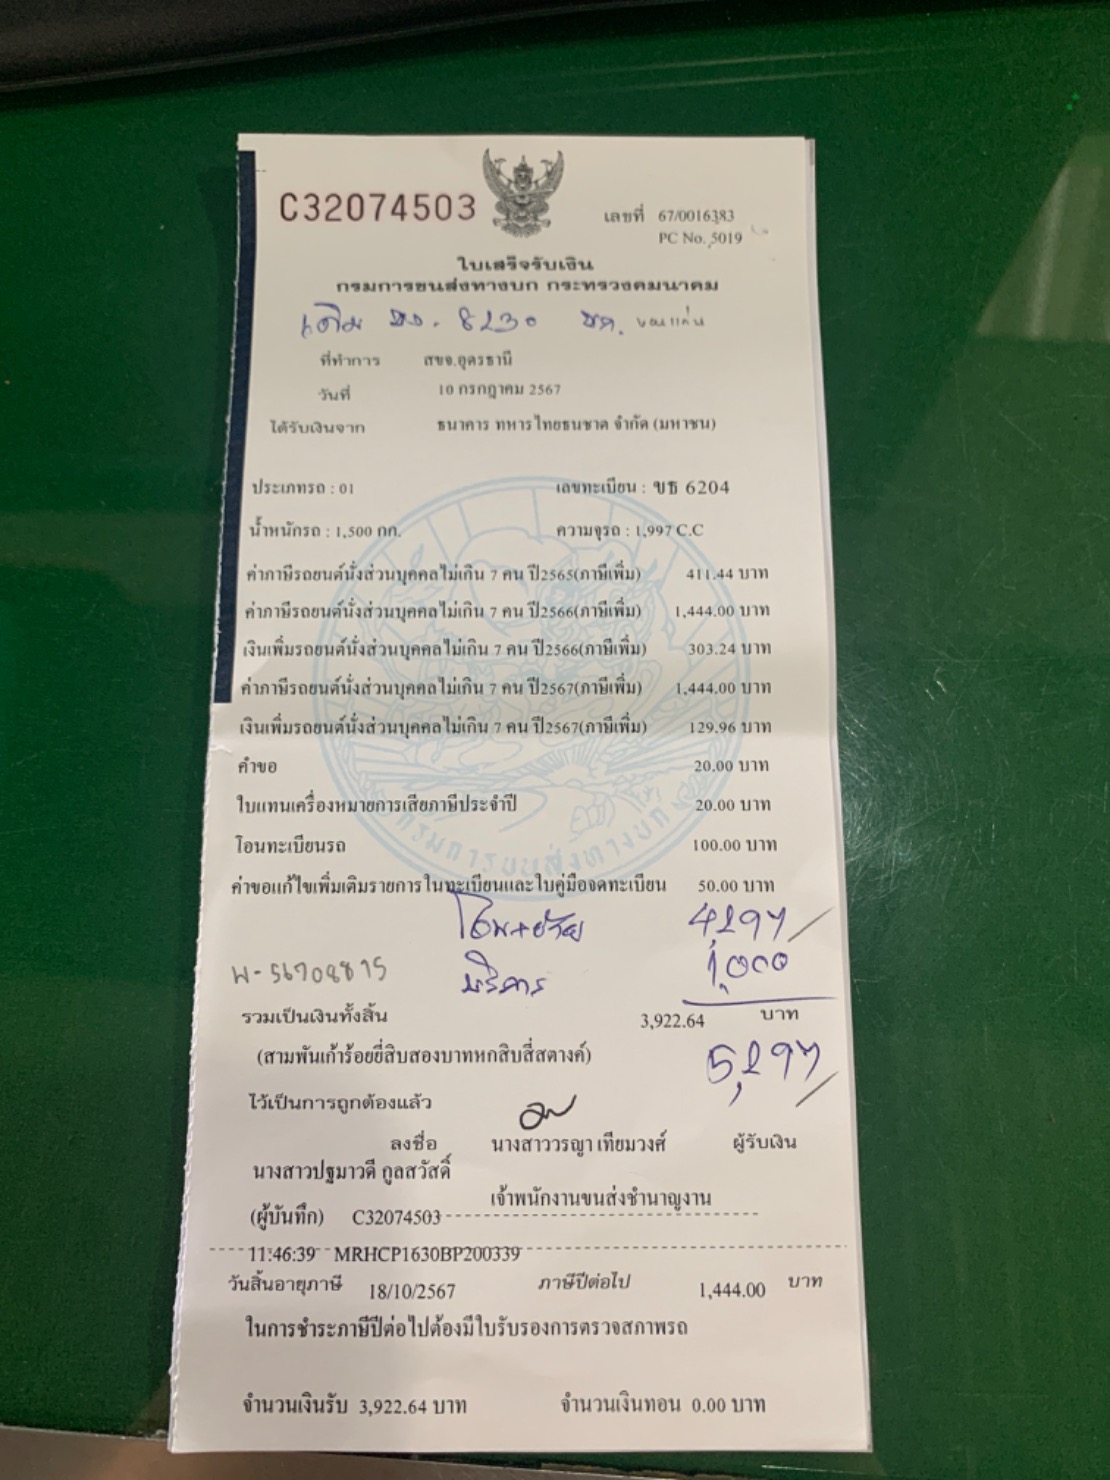 C32074503
เลขที่ 67/0016383
PC No. 5019
ใบเสร็จรับเงิน
กรมการขนส่งทางบก กระทรวงคมนาคม
เดิม 8230 ขอนแก่น
ที่ทำการ สขจ.อุดรธานี
วันที่ 10 กรกฎาคม 2567
ได้รับเงินจาก ธนาคาร ทหารไทยธนชาต จำกัด (มหาชน)
ประเภทรถ : 01 เลขทะเบียน : ขธ 6204
น้ำหนักรถ : 1,500 กก. ความจุรถ : 1,997 C.C
ค่าภาษีรถยนต์นั่งส่วนบุคคลไม่เกิน 7 คน ปี2565(ภาษีเพิ่ม) 411.44 บาท
ค่าภาษีรถยนต์นั่งส่วนบุคคลไม่เกิน 7 คน ปี2566(ภาษีเพิ่ม) 1,444.00 บาท
เงินเพิ่มรถยนต์นั่งส่วนบุคคลไม่เกิน 7 คน ปี2566(ภาษีเพิ่ม) 303.24 บาท
ค่าภาษีรถยนต์นั่งส่วนบุคคลไม่เกิน 7 คน ปี2567(ภาษีเพิ่ม) 1,444.00 บาท
เงินเพิ่มรถยนต์นั่งส่วนบุคคลไม่เกิน 7 คน ปี2567(ภาษีเพิ่ม) 129.96 บาท
คำขอ 20.00 บาท
ใบแทนเครื่องหมายการเสียภาษีประจำปี 20.00 บาท
โอนทะเบียนรถ 100.00 บาท
ค่าขอแก้ไขเพิ่มเติมรายการในทะเบียนและใบคู่มือจดทะเบียน 50.00 บาท
กรมการขนส่งทางบก
โอน+ย้าย 4,297
บริการ 1,000
รวมเป็นเงินทั้งสิ้น 3,922.64 บาท
(สามพันเก้าร้อยยี่สิบสองบาทหกสิบสี่สตางค์) 5,297
ไว้เป็นการถูกต้องแล้ว
ลงชื่อ นางสาววรญา เทียมวงศ์ ผู้รับเงิน
นางสาวปฐมาวดี กูลสวัสดิ์
เจ้าพนักงานขนส่งชำนาญงาน
(ผู้บันทึก) C32074503
11:46:39 MRHCP1630BP200339
วันสิ้นอายุภาษี 18/10/2567 ภาษีปีต่อไป 1,444.00 บาท
ในการชำระภาษีปีต่อไปต้องมีใบรับรองการตรวจสภาพรถ
จำนวนเงินรับ 3,922.64 บาท จำนวนเงินทอน 0.00 บาท